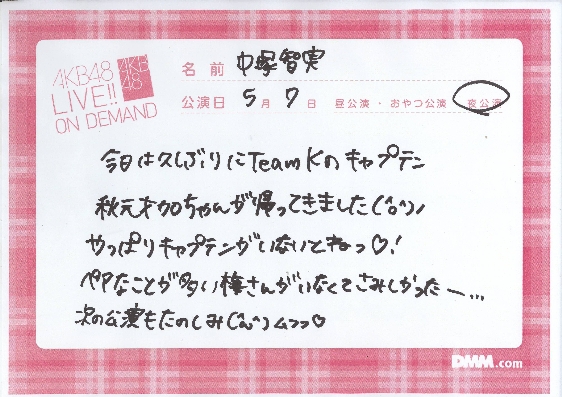 AKB48
LIVE!!
ON DEMAND
AKB
48
名前 中塚智実
公演日 5月7日 昼公演・おやつ公演 夜公演
今日は久しぶりにTeamKのキャプテン
秋元才加ちゃんが帰ってきました(^o^)ノ
やっぱりキャプテンがいないとねっ♡!
ペアなことが多い梅さんがいなくてさみしかったー…
次の公演もたのしみ(^^)
DMM.com